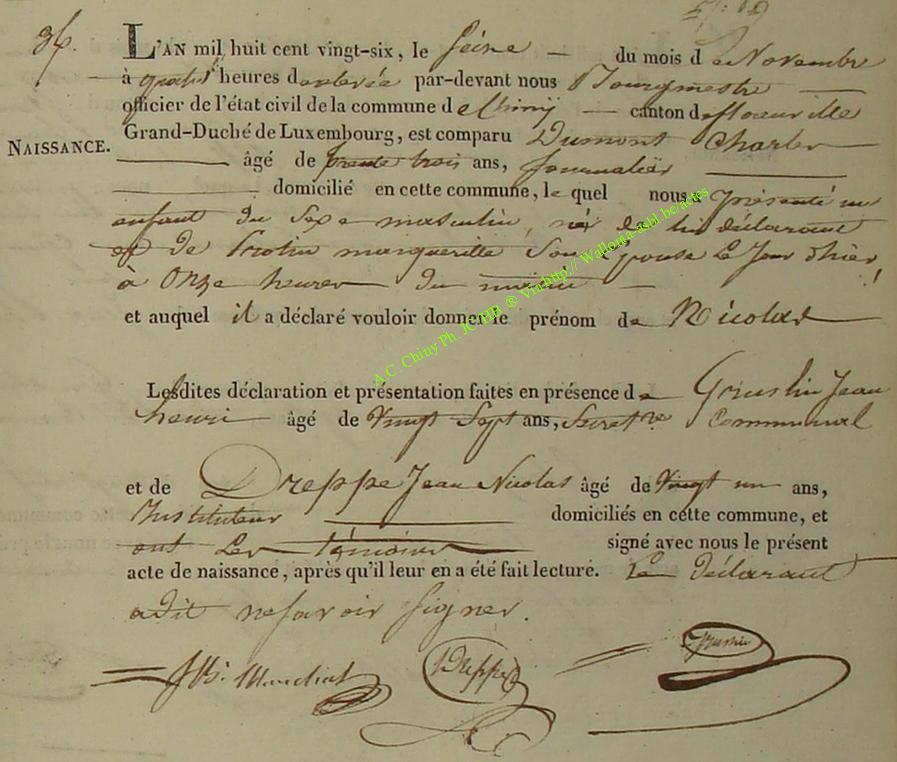 36.
L'AN mil huit cent vingt-six, le Seize du mois de Novembre
à quatre heures de relevée par-devant nous Bourgmestre
officier de l'état civil de la commune de Chiny canton de florenville
Grand-Duché de Luxembourg, est comparu Dumont Charles
NAISSANCE.
âgé de trente trois ans, Journalier
domicilié en cette commune, le quel nous a présenté un
enfant du Sexe masculin, né de lui déclarant
et de marguerite Son Epouse Le Jour d'hier,
à Onze heures du matin
et auquel il a déclaré vouloir donner le prénom de Nicolas
Lesdites déclaration et présentation faites en présence de Jean
henri âgé de Vingt Sept ans, Secret.re Communal
et de Dreppe Jean Nicolas âgé de Vingt un ans,
Instituteur domiciliés en cette commune, et
ont Les témoins signé avec nous le présent
acte de naissance, après qu'il leur en a été fait lecture. Le déclarant
a dit ne savoir Signer.
Dreppe
A.C. Chiny Ph. JCMB ® Via http://Wallonia-asbl.be/actes